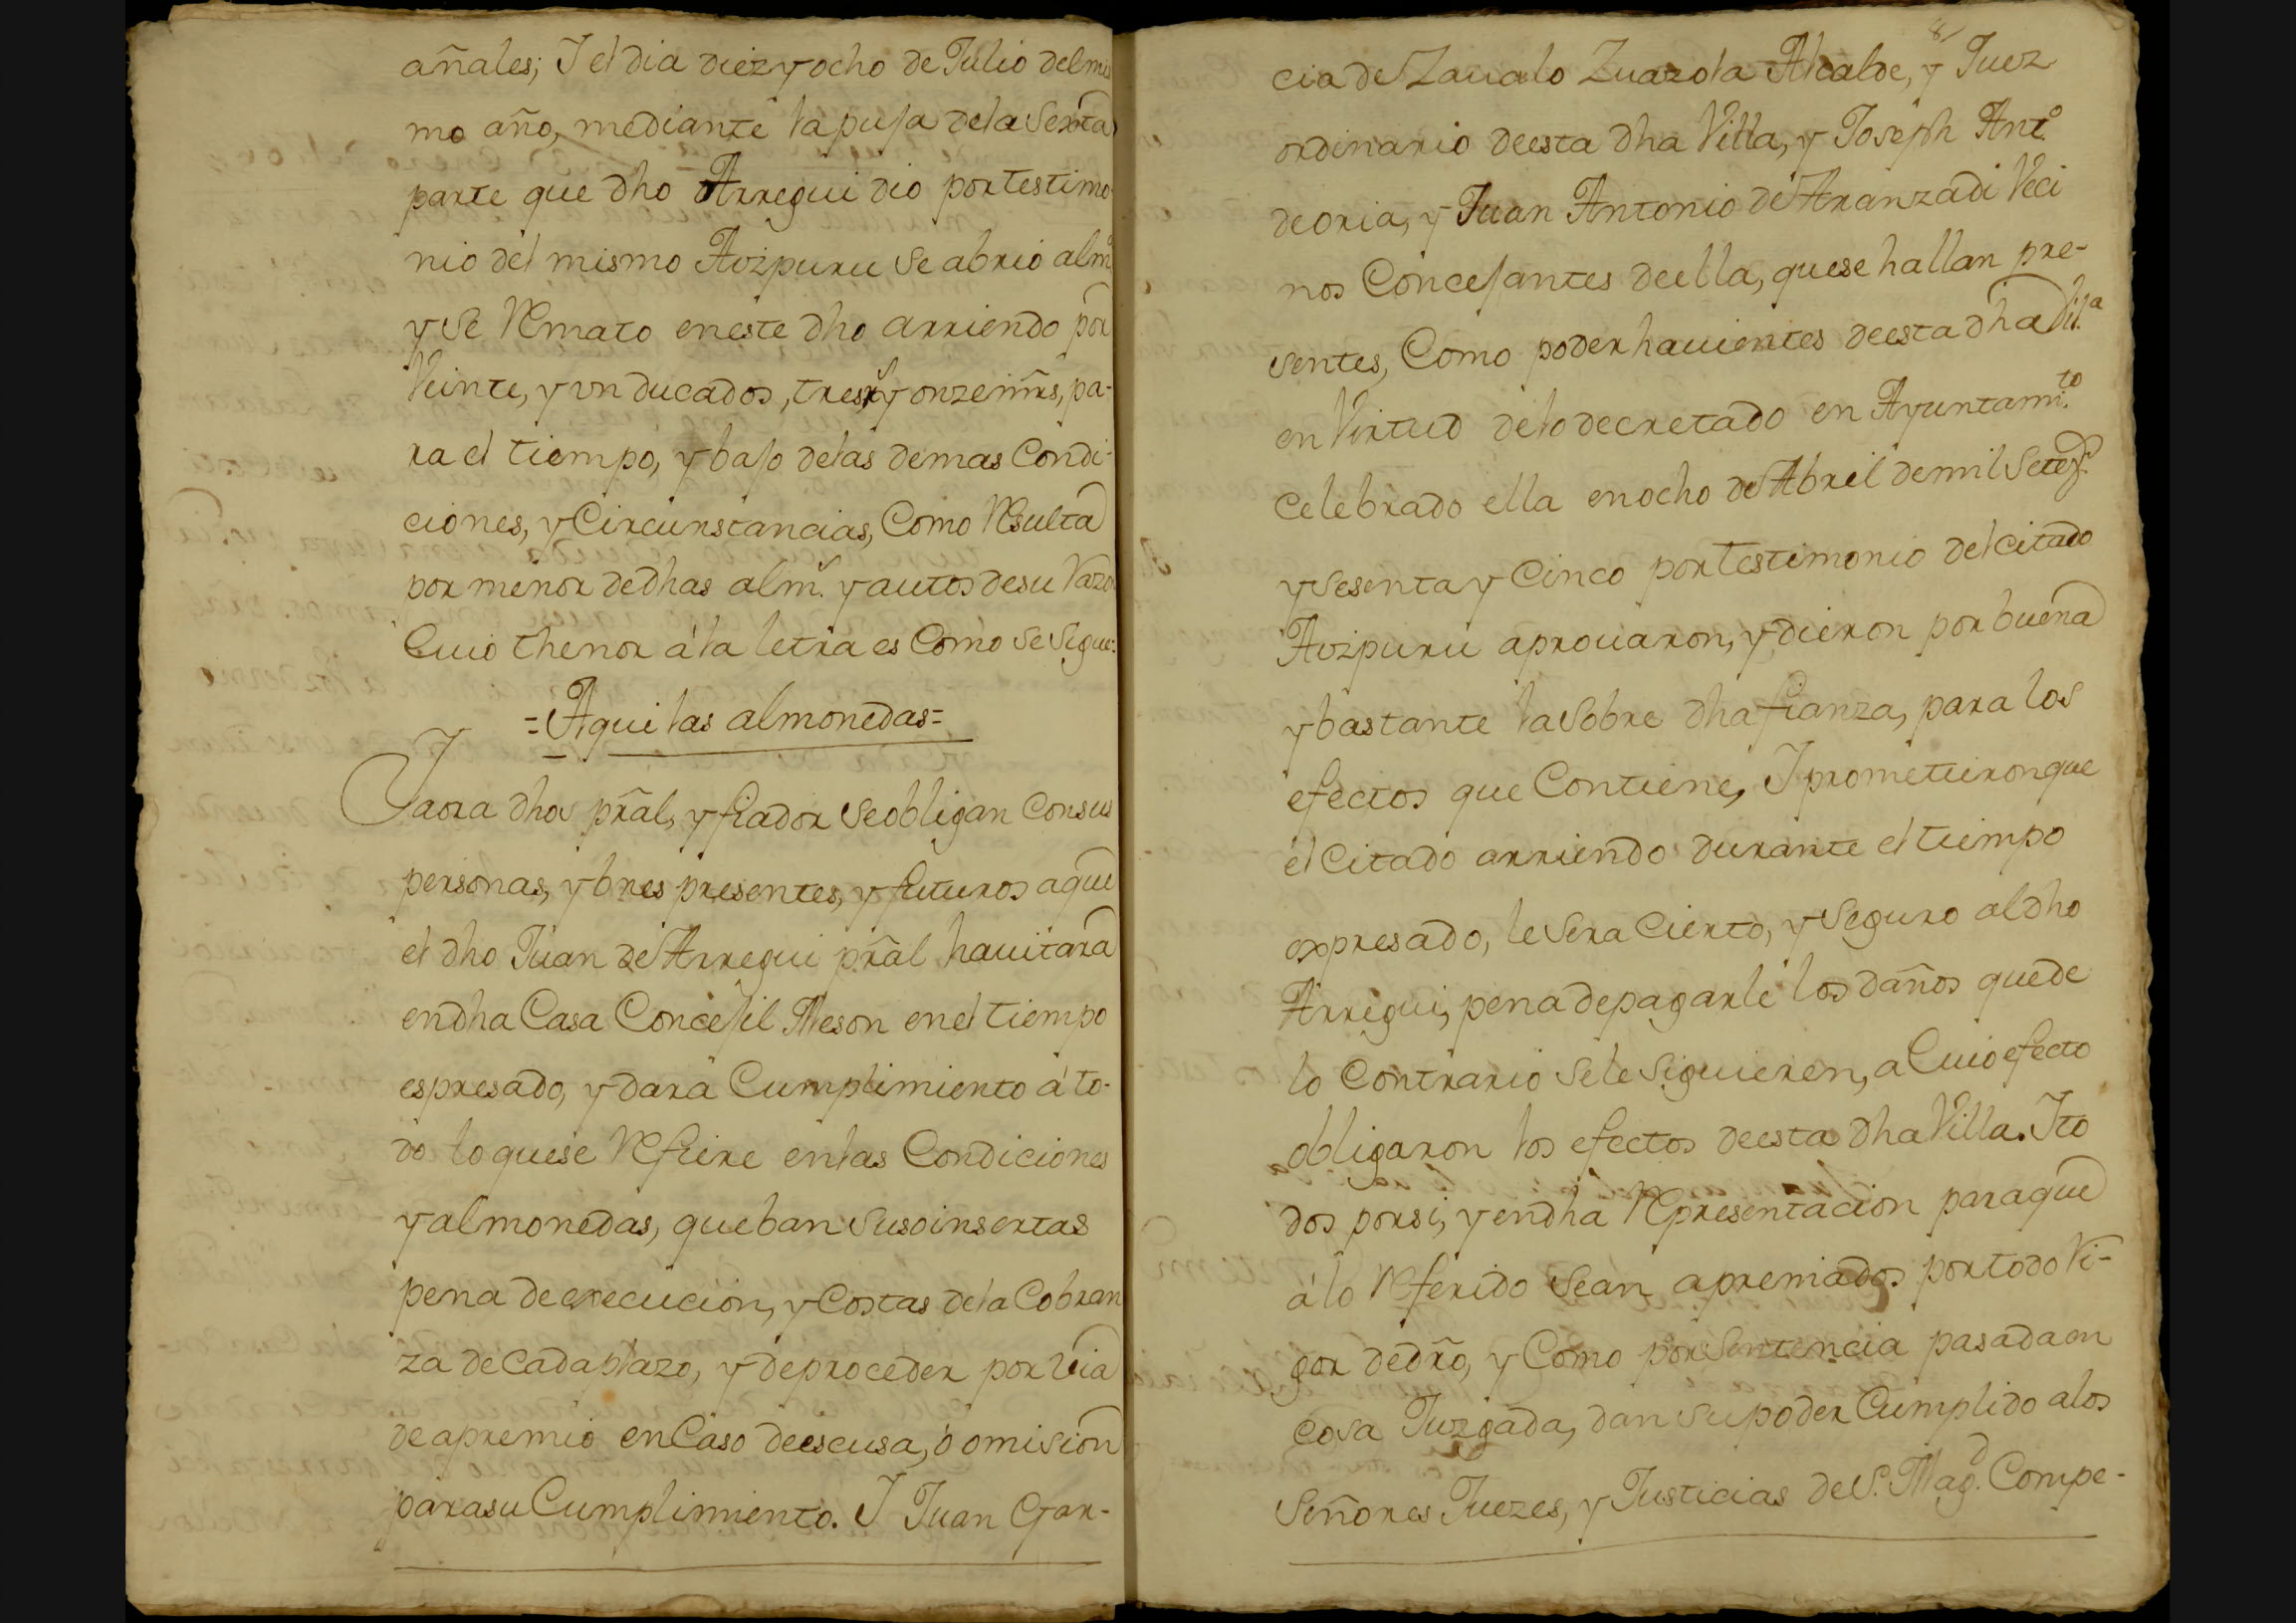 añales; Y el dia diez y ocho de Julio del mis
mo año, mediante la puja de la Sexta
parte que dho Arregui dio por testimo
nio del mismo Aozpuru se abrio alm.ª
y se Remato en este dho arriendo por
Veinte, y un ducados, tres rˢ y onze mrs, pa-
ra el tiempo, y bajo de las demas Condi-
ciones, y Circunstancias, Como Resulta
por menor de dhas almˢ. y autos de su Razon
Cuio thenor á la letra es Como se sigue:
=Aqui las almonedas=
Y aora dhos pral, y fiador se obligan Con sus
personas, y bnes presentes, y futuros a que
el dho Juan de Arregui pral havitara
en dha Casa Concejil Meson en el tiempo
espresado, y dará Cumplimiento á to-
do lo que se Refiere en las Condiciones
y almonedas, que ban suso insertas
pena de execucion, y Costas de la Cobran
za de Cada plazo, y de proceder por via
de apremio en Caso de escusa, ó omision
para su Cumplimiento. Y Juan Gar-
8
cia de Zavalo Zuazola Alcalde, y Juez
ordinario de esta dha Villa, y Joseph Ant.º
de oria, y Juan Antonio de Aranzadi Veci
nos Concejantes de ella, que se hallan pre-
sentes, Como poder havientes de esta dha Vil.ª
en Virtud de lo decretado en Ayuntam.to
Celebrado ella en ocho de Abril de mil Setez.s
y Sesenta y Cinco por testimonio del citado
Aozpuru aprovaron, y dieron por buena
y bastante la sobre dha fianza, para los
efectos que Contiene, Y prometieron que
el Citado arriendo durante el tiempo
expresado, le sera Cierto, y Seguro al dho
Arregui, pena de pagarle los daños que de
lo Contrario se le siguieren, a Cuio efecto
obligaron los efectos de esta dha Villa. Yto
dos por si, y en dha Representacion para que
á lo Referido sean apremiados por todo Vi-
gor de dro, y Como por Sentencia pasada en
cosa Juzgada, dan su poder Cumplido a los
Señores Juezes, y Justicias de S. Mag.d Compe-